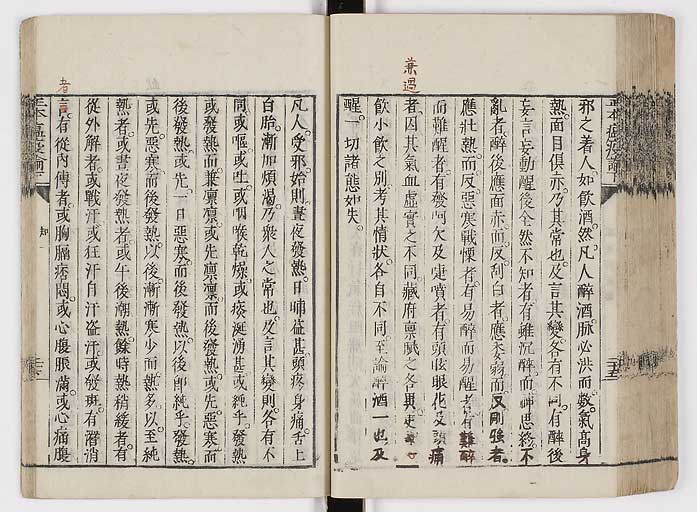 兼過
邪之着人。如飲酒然。凡人醉酒。脈必洪而數。氣高身
熱。面目俱赤。乃其常也。及言其變。各有不同。有醉後
妄言妄動。醒後全然不知者。有雖沉醉而神思終不
亂者。醉後應面赤。而反刮白者。應委弱而反剛強者。
應壯熱。而反惡寒戰慄者。有易醉而易醒者。有難醉
而難醒者。有發呵欠及嚏噴者。有頭眩眼花及頭痛
者。因其氣血虛實之不同。臟府稟賦之各異。更
飲小飲之別。考其情狀。各自不同。至論醉酒一也。及
醒。一切諸態如失。
凡人受邪。始則晝夜發熱。日晡益甚。頭疼身痛。舌上
白胎。漸加煩渴。乃衆人之常也。及言其變。則各有不
同。或嘔。或吐。或咽喉乾燥。或痰涎湧甚。或純乎發熱。
或發熱而兼凛凛。或先凛凛而後發熱。或先惡寒而
後發熱。或先一日惡寒。而後發熱。以後即純乎發熱。
或先惡寒而後發熱。以後漸漸寒少而熱多。以至純
熱者。或晝夜發熱者。或午後潮熱。餘時熱稍緩者。有
從外解者。或戰汗。或狂汗自汗盜汗。或發斑。有潛消
者
言。有從內傳者。或胸膈痞悶。或心腹脹滿。或心痛腹